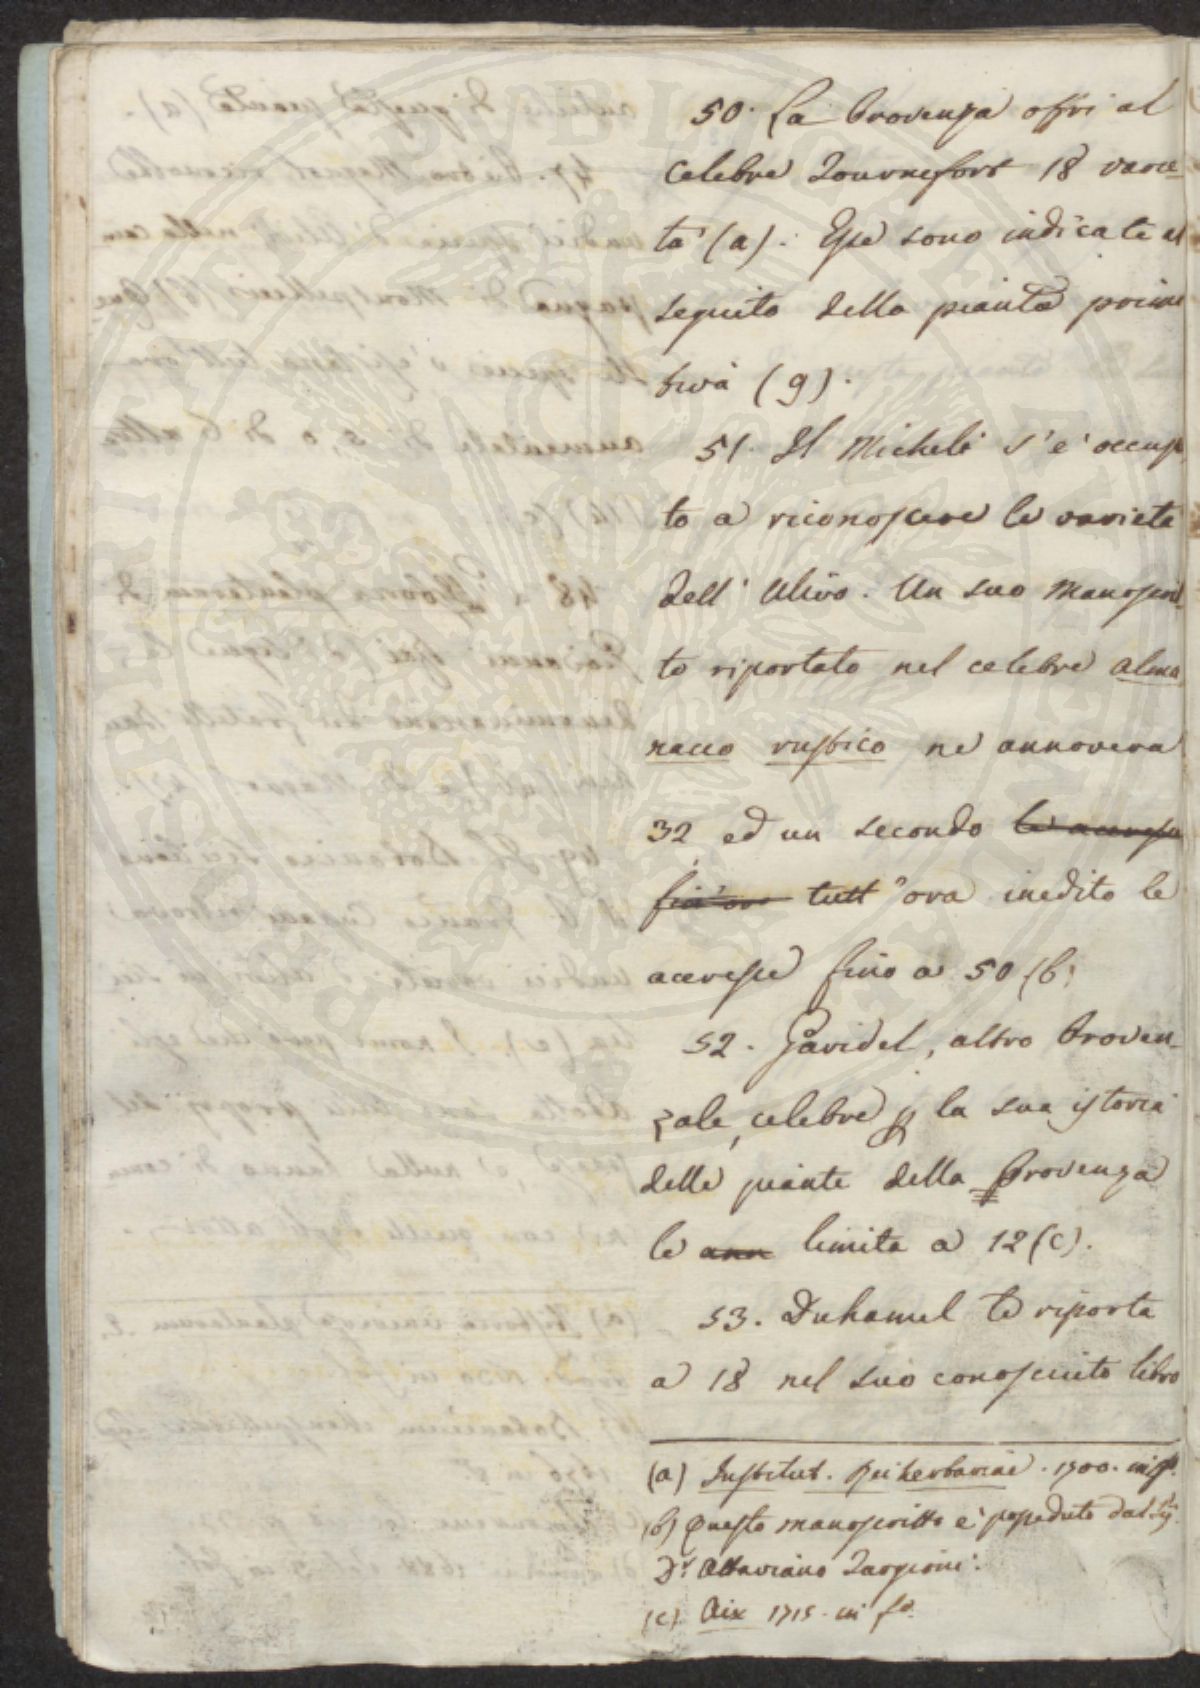 50. La Provenza offrì al
celebre Tournefort 18 varie-
tà (a). Esse sono indicate al
seguito della pianta primi
tiva (g).
51. Il Micheli s'è occupa
to a riconoscere le varietà
dell' Ulivo. Un suo manoscrit
to riportato nel celebre alma
nacco rustico ne annovera
32 ed un secondo le accresce
tutt' ora inedito le
accresce fino a 50 (b)
52. Garidel, altro Proven-
zale, celebre p la sua istoria
delle piante della Provenza
le ann limita a 12 (c).
53. Duhamel le riporta
a 18 nel suo conosciuto libro
(a) Institut. Rei herbariae. 1700. in
(b) Questo manoscritto è posseduto dal Sig.
Dr. Ottaviano Targioni.
(c) Aix 1715. in fo.